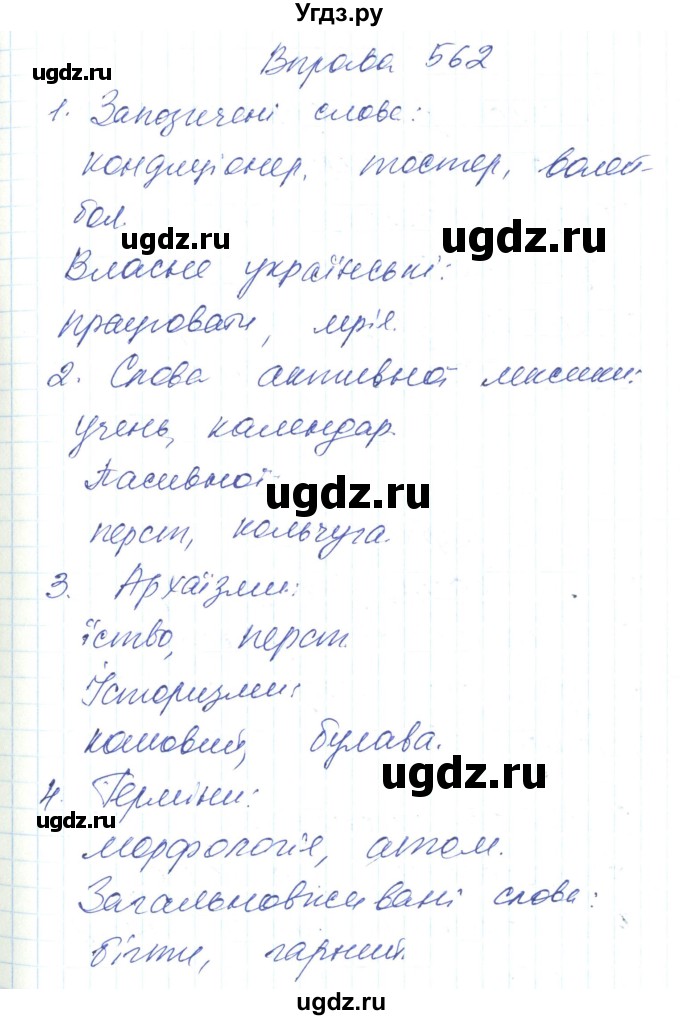 Угдз.ру
Вправа 562
ugdz.ru
1. Запозичені слова:
кондиціонер, тостер, волей-
бол.
ugdz.ru
ugdz.ru
Власне українські:
працювати, мрія.
2. Слова активної лексики:
учень, календар.
ugdz.ru
Пасивної:
ugdz.ru
перст, кольчуга.
3. Архаїзми:
їство, перст.
Історизми:
кошовий, булава.
ugdz.ru
4. Терміни:
ugdz.ru
морфологія, атом.
Загальновживані слова:
бігти, гарний.
ugdz.ru
ugdz.ru